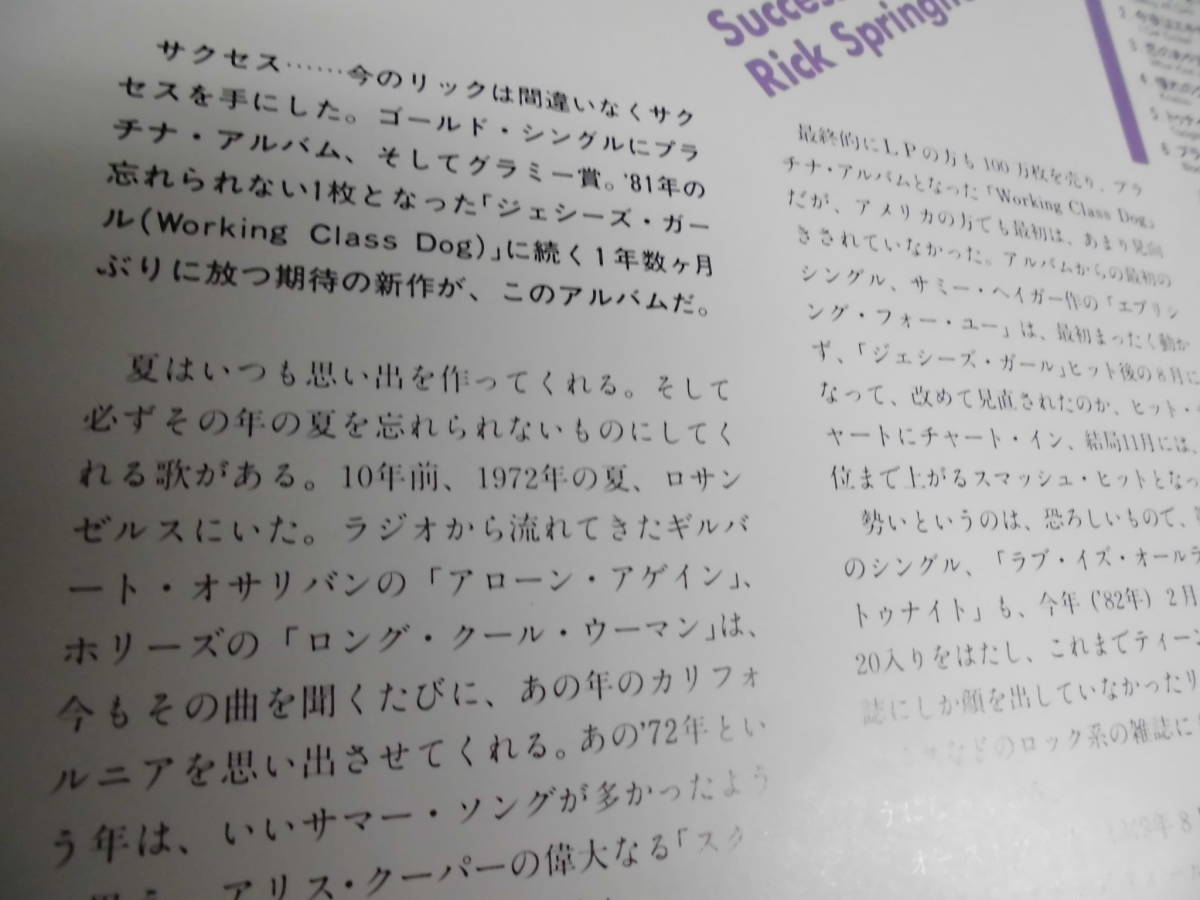 Rick
サクセス……今のリックは間違いなくサク
セスを手にした。ゴールド・シングルにプラ
チナ・アルバム、そしてグラミー賞。'81年の
忘れられない1枚となった「ジェシーズ・ガー
ル(Working Class Dog)」に続く1年数ヶ月
ぶりに放つ期待の新作が、このアルバムだ。
夏はいつも思い出を作ってくれる。そして
必ずその年の夏を忘れられないものにしてく
れる歌がある。10年前、1972年の夏、ロサン
ゼルスにいた。ラジオから流れてきたギルバ
ート・オサリバンの「アローン・アゲイン」、
ホリーズの「ロング・クール・ウーマン」は、
今もその曲を聞くたびに、あの年のカリフォ
ルニアを思い出させてくれる。あの'72年とい
う年は、いいサマー・ソングが多かったよう
アリス・クーパーの偉大なる「スク
最終的にLPの方も100万枚を売り、プラ
チナ・アルバムとなった「Working Class Dog」
だが、アメリカの方でも最初は、あまり見向
きされていなかった。アルバムからの最初の
シングル、サミー・ヘイガー作の「エブリシ
ング・フォー・ユー」は、最初まったく動か
ず、「ジェシーズ・ガール」ヒット後の8月に
なって、改めて見直されたのか、ヒット・
ャートにチャート・イン、結局11月には、
位まで上がるスマッシュ・ヒットとなっ
勢いというのは、恐ろしいもので、
のシングル、「ラブ・イズ・オールラ
トゥナイト」も、今年('82年)2月
20入りをはたし、これまでティーン
誌にしか顔を出していなかったリ
などのロック系の雑誌に